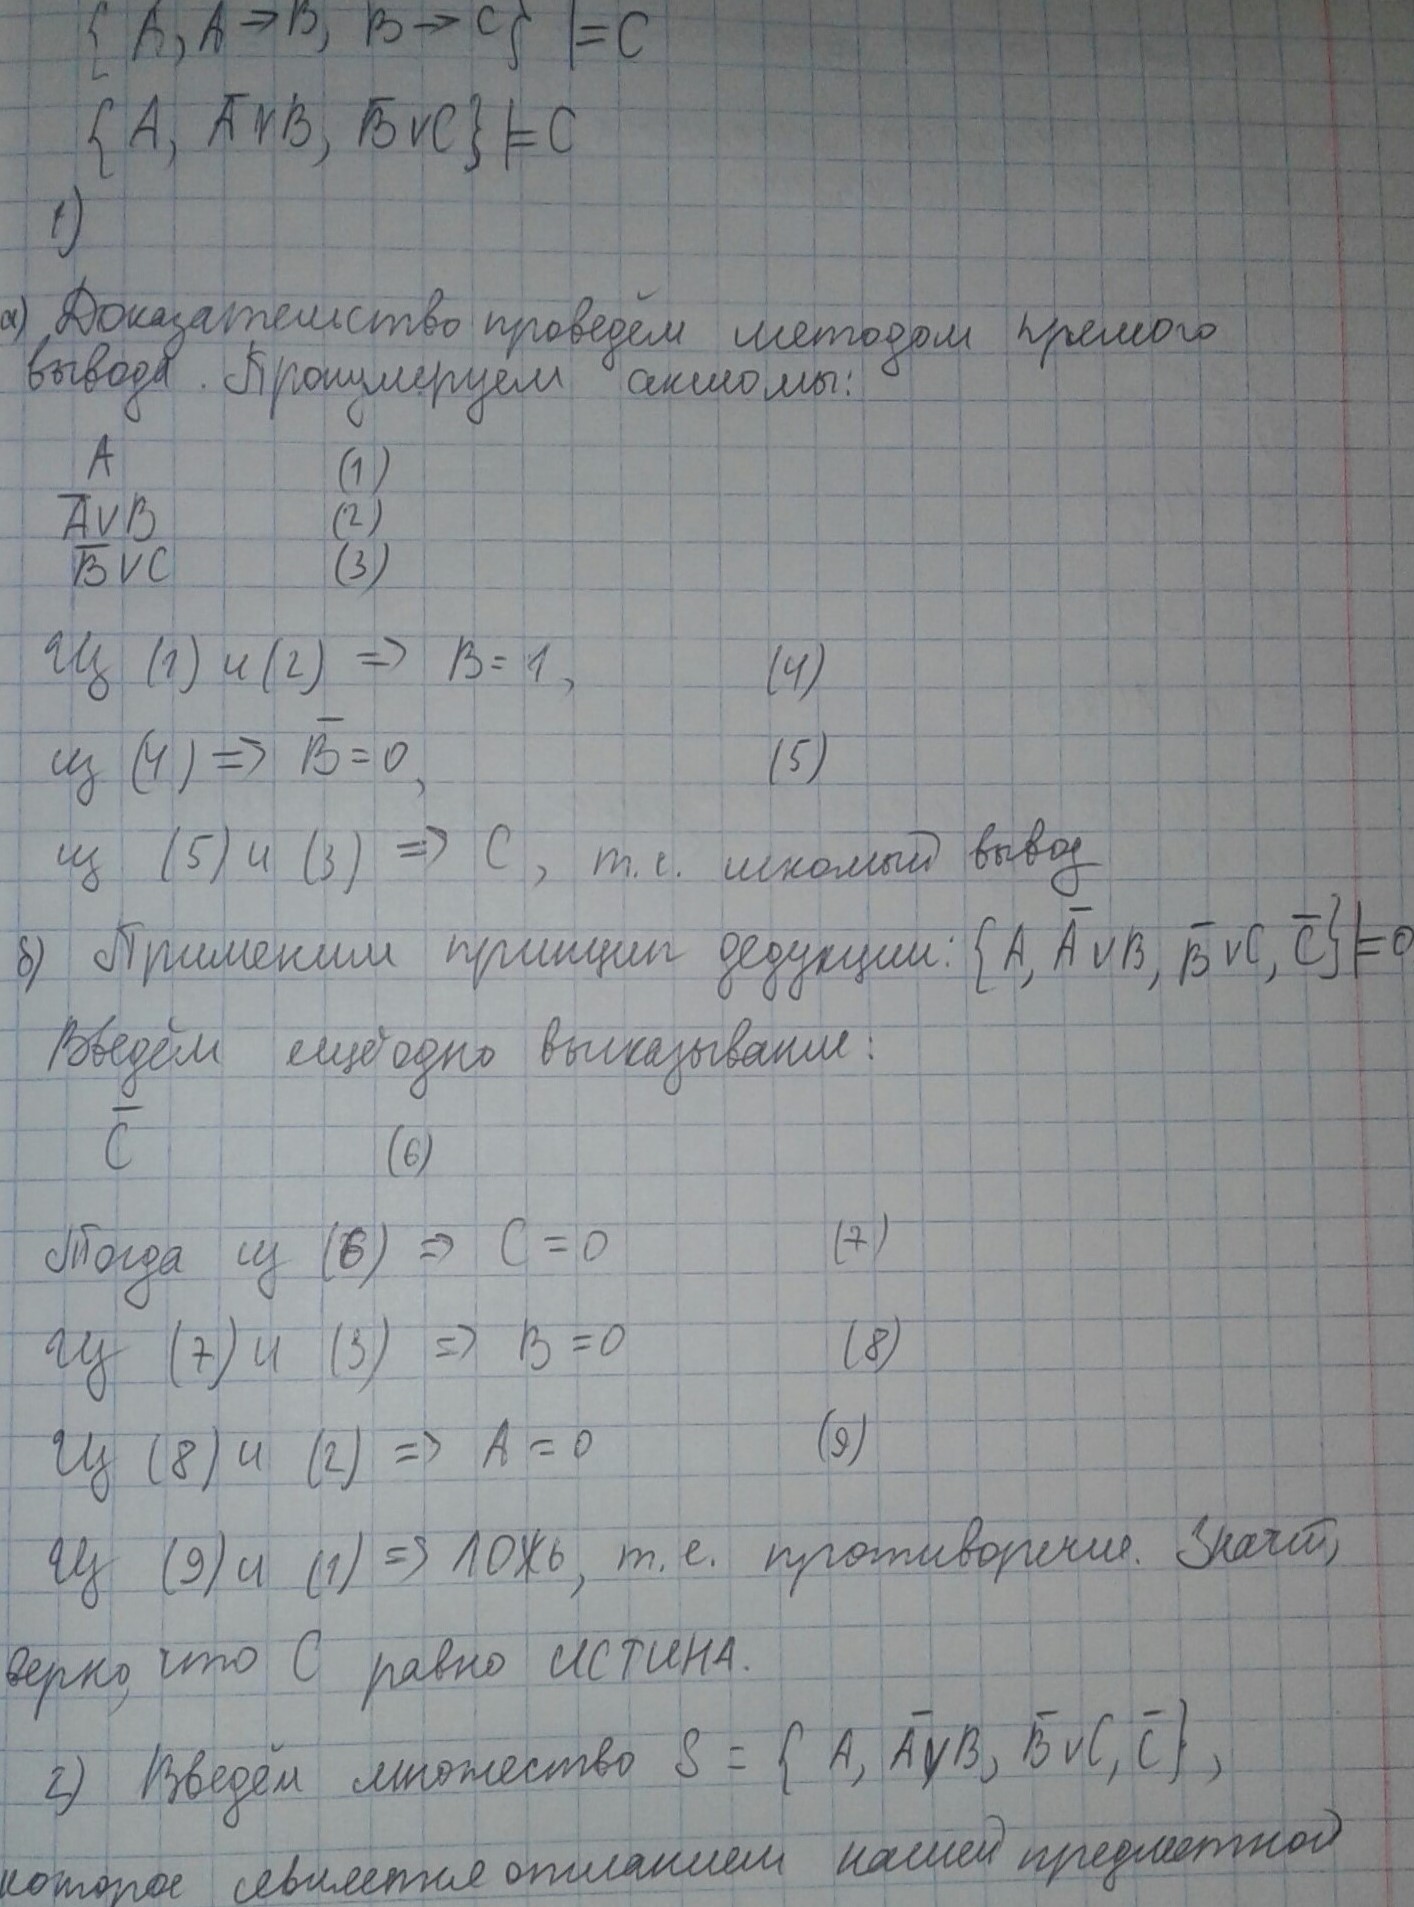 { A, A→B, B→C} |= C
{ A, A̅vB, B̅vC} |= C
1)
а) Доказательство проведём методом прямого
вывода. Пронумеруем аксиомы:
A (1)
A̅vB (2)
B̅vC (3)
Из (1) и (2) => B=1, (4)
из (4) => B̅=0, (5)
из (5) и (3) => C, т.е. искомый вывод
б) Применим принцип дедукции: {A, A̅vB, B̅vC, C̅} |= 0
Введём ещё одно высказывание:
C̅ (6)
Тогда из (6) => C=0 (7)
Из (7) и (3) => B=0 (8)
Из (8) и (2) => A=0 (9)
Из (9) и (1) => ЛОЖЬ, т.е. противоречие. Значит,
верно, что C равно ИСТИНА.
2) Введём множество S = { A, A̅vB, B̅vC, C̅},
которое является описанием нашей предметной